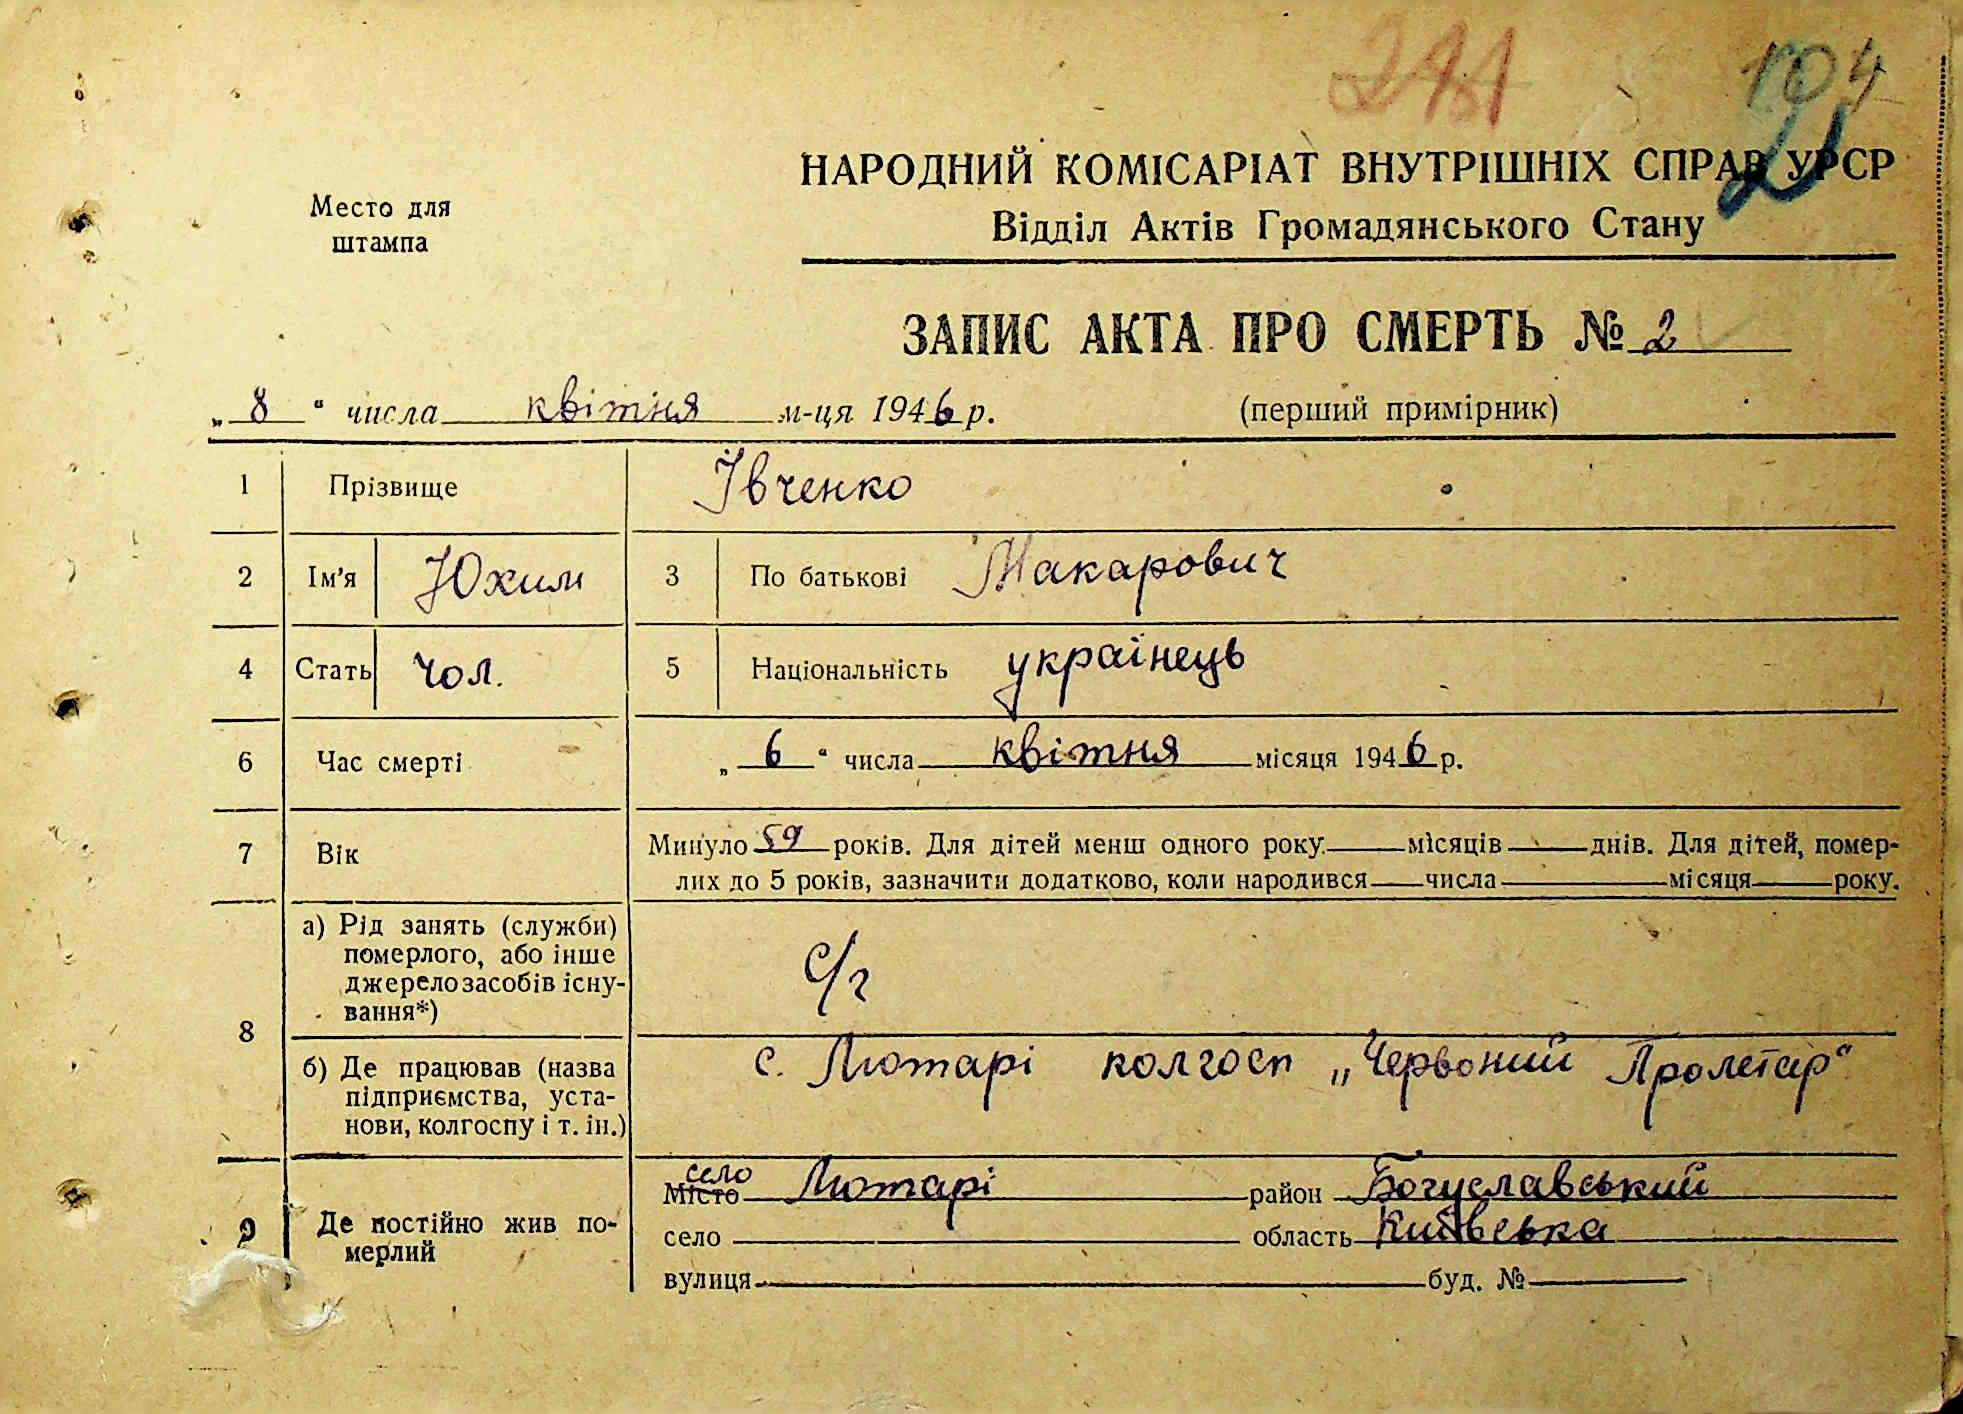 104
2
НАРОДНИЙ КОМІСАРІАТ ВНУТРІШНІХ СПРАВ УРСР
Відділ Актів Громадянського Стану
Место для
штампа
ЗАПИС АКТА ПРО СМЕРТЬ № 2
„ 8 " числа квітня м-ця 1946 р.
(перший примірник)
1 Прізвище Івченко
2 Ім'я Юхим 3 По батькові Макарович
4 Стать чол. 5 Національність українець
6 Час смерті „ 6 " числа квітня місяця 1946 р.
7 Вік Минуло 59 років. Для дітей менш одного року — місяців — днів. Для дітей, помер-
лих до 5 років, зазначити додатково, коли народився — числа — місяця — року.
8 а) Рід занять (служби)
померлого, або інше
джерело засобів існу-
вання*)
с/г
б) Де працював (назва
підприємства, уста-
нови, колгоспу і т. ін.)
с. Лютарі колгосп „Червоний Пролетар"
9 Де постійно жив по-
мерлий
село
Місто Лютарі район Богуславський
село область Київська
вулиця буд. №